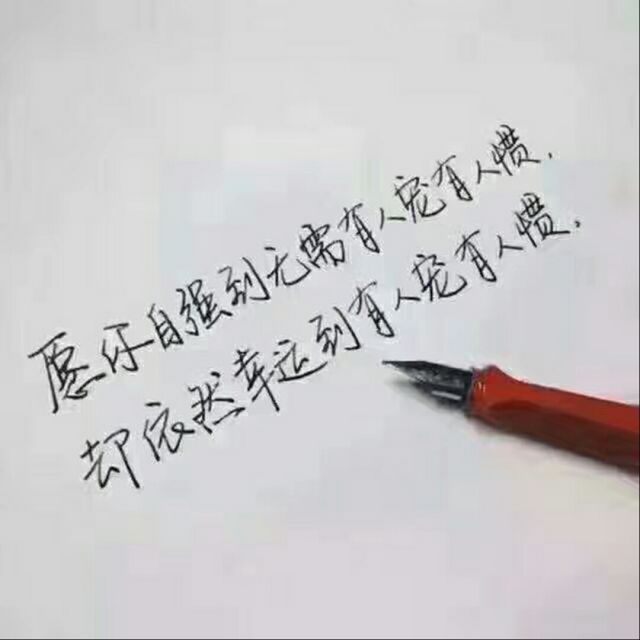 愿你自强到无需有人宠有人惯，
却依然幸运到有人宠有人惯，